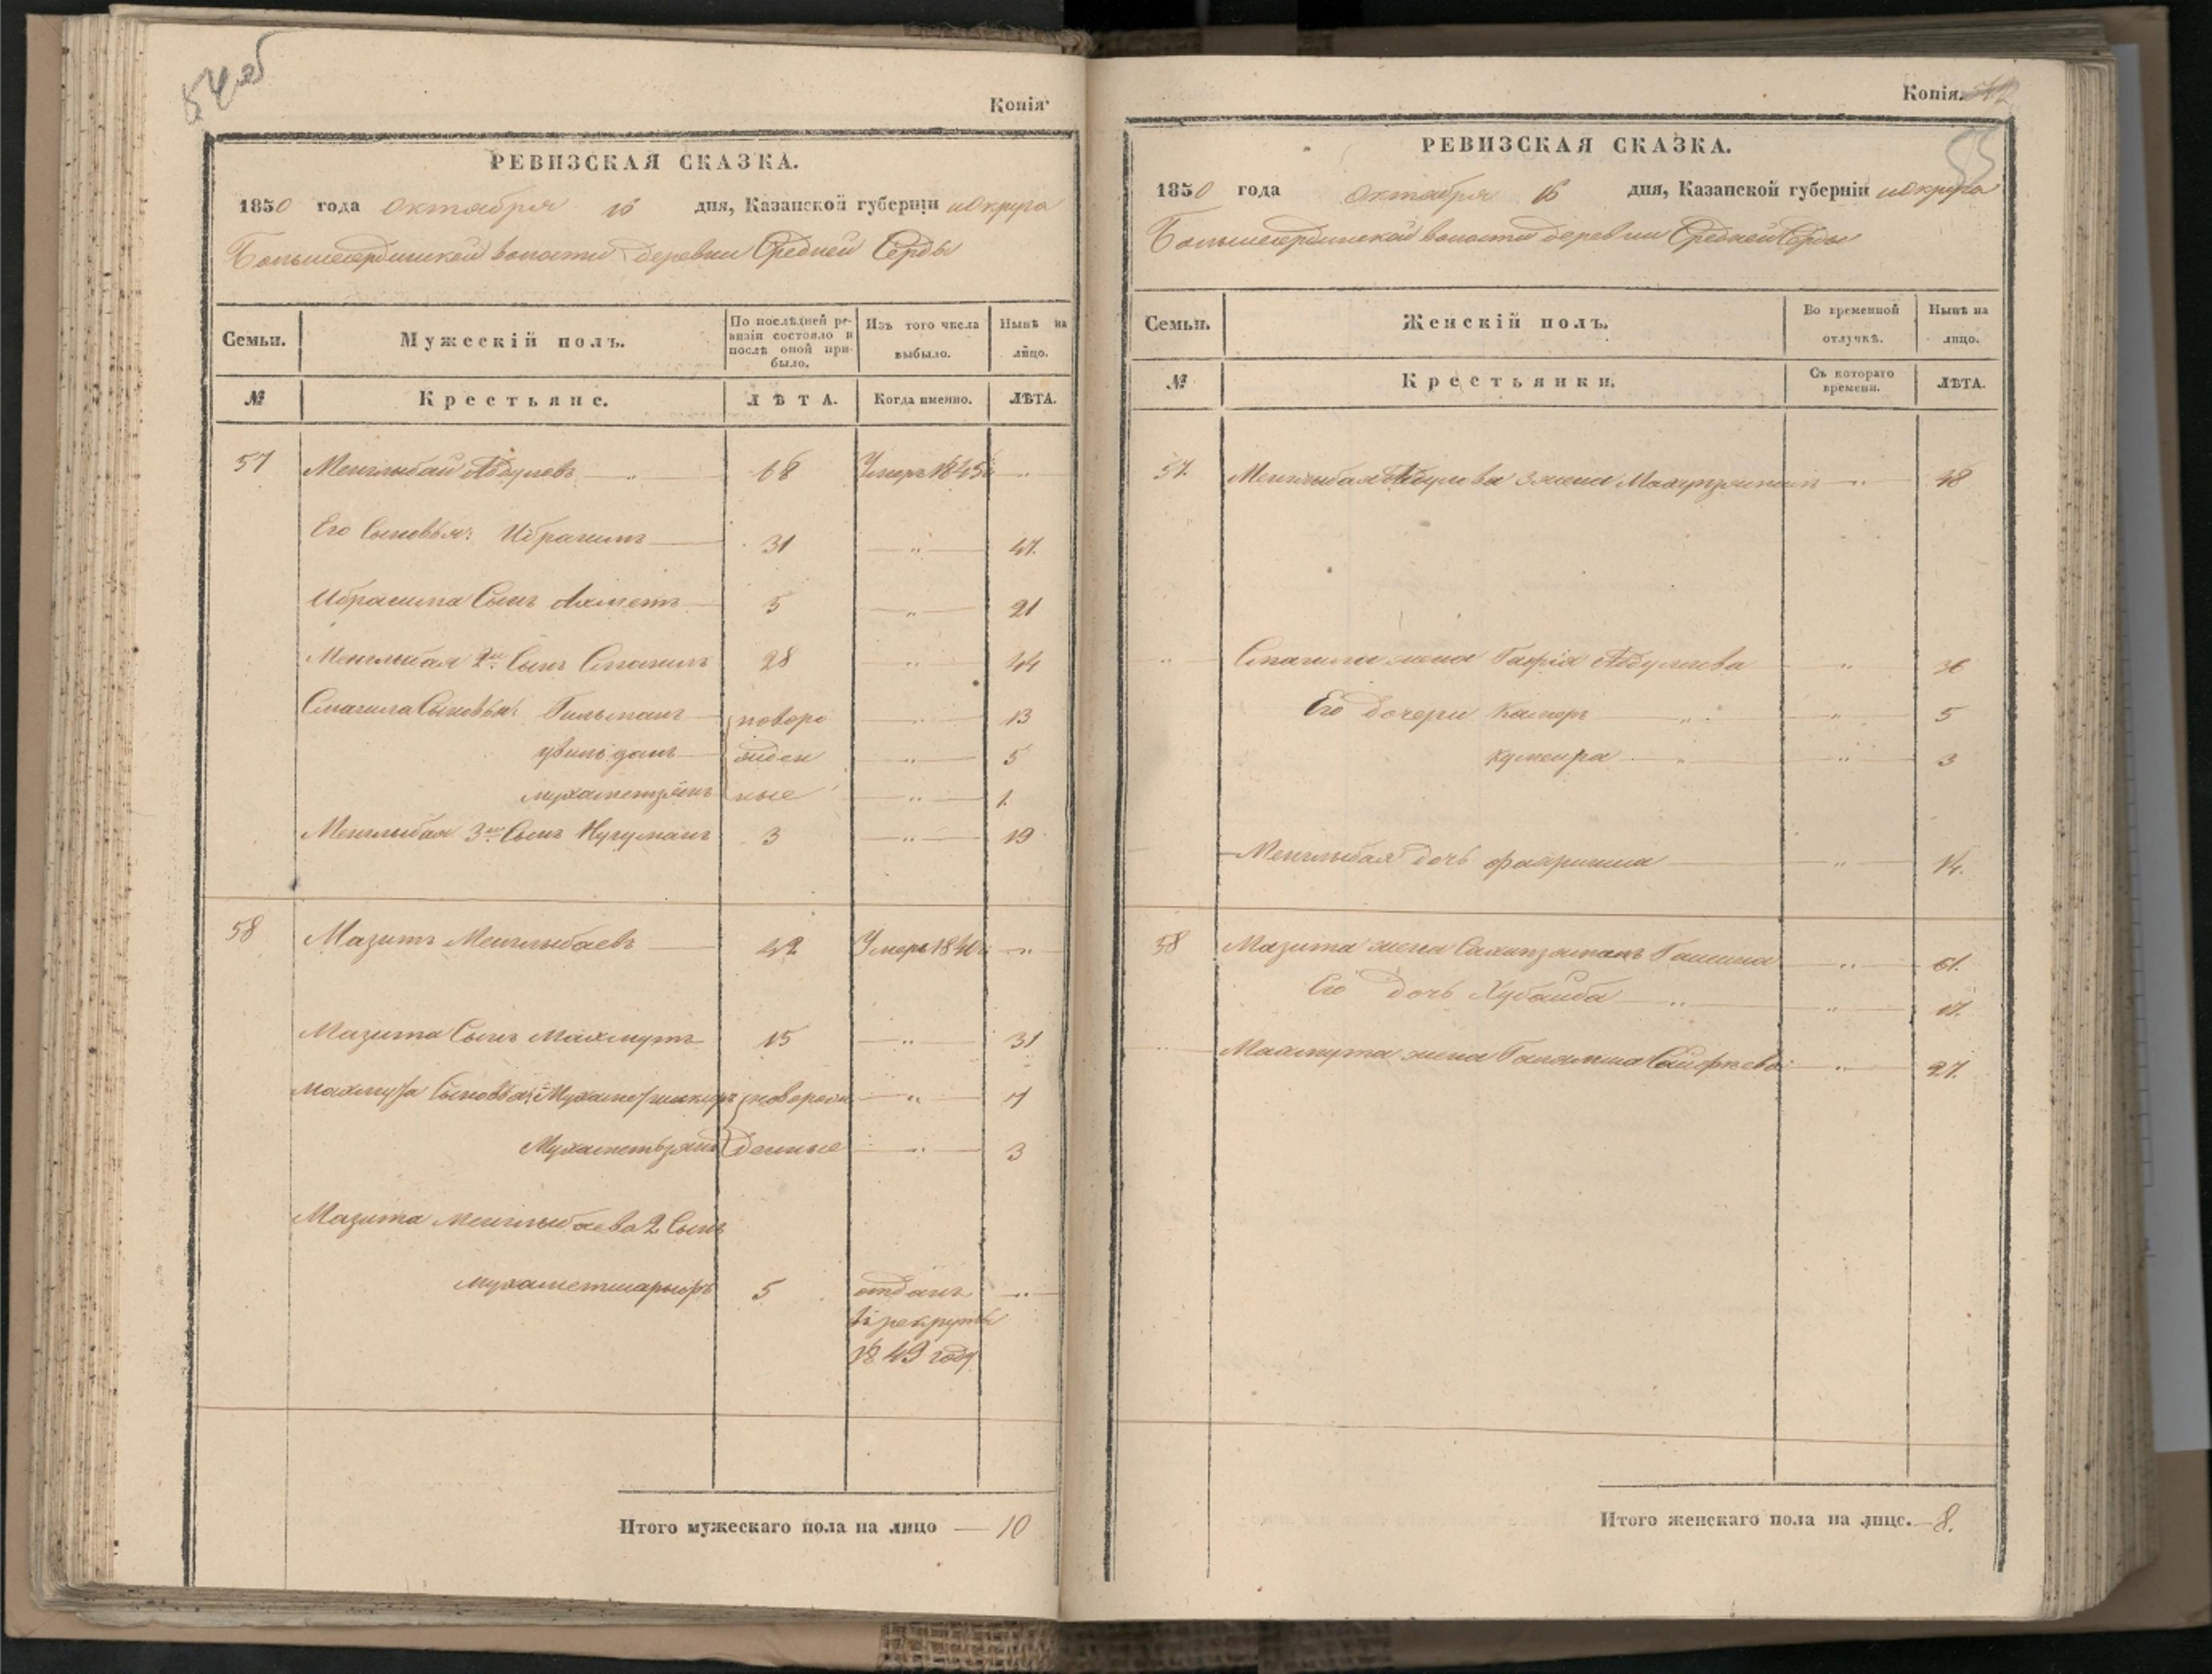 54об
Копія
РЕВИЗСКАЯ СКАЗКА.
1850 года Октября 16 дня, Казанской губерніи и Округа
Большесердинской волости деревни Средней Серды
Семьи. Мужескій полъ. По послѣдней ревизіи состояло и послѣ оной прибыло. Изъ того числа выбыло. Нынѣ на лицо.
№ Крестьяне. ЛѢТА. Когда именно. ЛѢТА.
57 Менглыбай Абдуловъ 68 Умеръ 1845 г
Его Сыновья: Ибрагимъ 31 47
Ибрагима Сынъ Ахметъ 5 21
Менглыбая 2й Сынъ Смагилъ 28 44
Смагила Сыновья: Гильманъ новоро 13
жден 5
Мухаметзянъ ные 1
Менглыбая 3й Сынъ Нугуманъ 3 19
58 Мазитъ Менглыбаевъ 42 Умеръ 1840 г
Мазита Сынъ Махмутъ 15 31
Махмута Сыновья: Мухаметшакиръ новорож 7
Мухаметьзянъ денные 3
Мазита Менглыбаева 2 Сынъ
Мухаметшарыфъ 5 отданъ
въ рекруты
1849 году
Итого мужескаго пола на лицо 10
Копія.
55
РЕВИЗСКАЯ СКАЗКА.
1850 года Октября 16 дня, Казанской губерніи и Округа
Большесердинской волости деревни Средней Серды
Семьи. Женскій полъ. Во временной отлучкѣ. Нынѣ на лицо.
№ Крестьянки. Съ котораго времени. ЛѢТА.
57 Менглыбая Абдулова 3 жена 48
Смагила жена Абдулова 36
Его дочери Камеръ 5
3
Менглыбая дочь 14.
58 Мазита жена 61.
Его дочь Хубайба 17.
Махмута жена 27.
Итого женскаго пола на лицо. 8.